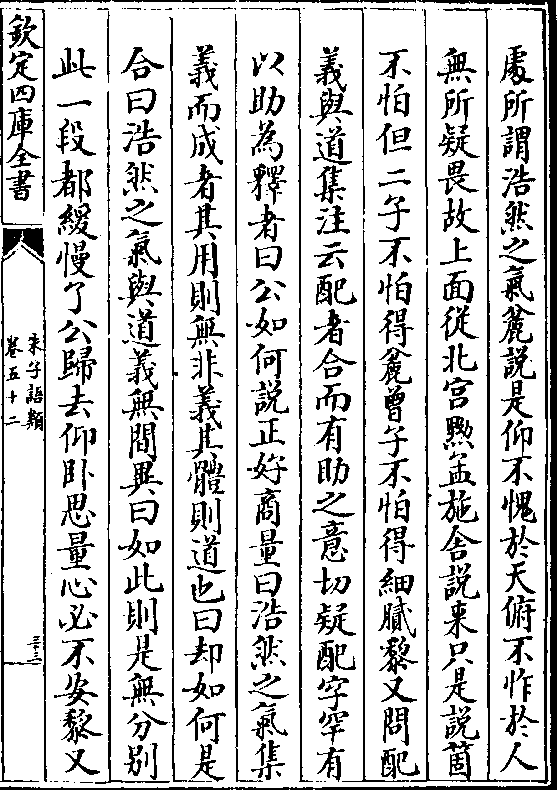 處所謂浩然之氣麄說是仰不愧於天俯不怍於人
無所疑畏故上面從北宫黝孟施舍說来只是說箇
不怕但二子不怕得麄曾子不怕得細膩黎又問配
義與道集注云配者合而有助之意切疑配字罕有
以助為釋者曰公如何說正好商量曰浩然之氣集
義而成者其用則無非義其體則道也曰却如何是
合曰浩然之氣與道義無間異曰如此則是無分别
此一段都緩慢了公歸去仰卧思量心必不安黎又
欽定四庫全書
朱子語類
卷五十二
三十三